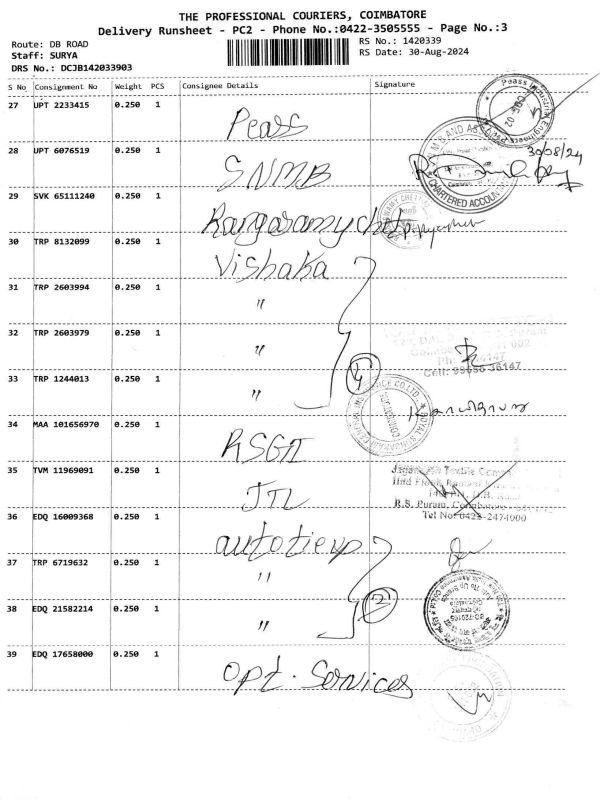 THE PROFESSIONAL COURIERS, COIMBATORE
Delivery Runsheet - PC2 - Phone No.:0422-3505555 - Page No.:3
Route: DB ROAD
RS No.: 1420339
Staff: SURYA
RS Date: 30-Aug-2024
DRS No.: DCJB142033903
S No Consignment No Weight PCS Consignee Details Signature
27 UPT 2233415 0.250 1 Peass
28 UPT 6076519 0.250 1 SNMB 30/08/24
CHARTERED ACCOUNTANTS
29 SVK 65111240 0.250 1 Rangasamy chetty
30 TRP 8132099 0.250 1 Vishaka
31 TRP 2603994 0.250 1 "
32 TRP 2603979 0.250 1 "
33 TRP 1244013 0.250 1 " 4
Cell: 99655 36147
34 MAA 101656970 0.250 1 RSGI
35 TVM 11969091 0.250 1 JTL
R.S. Puram, Coimbatore
Tel No: 0422-2474900
36 EDQ 16009368 0.250 1 autotieup
37 TRP 6719632 0.250 1 "
38 EDQ 21582214 0.250 1 " 3
39 EDQ 17658000 0.250 1 opt. Services